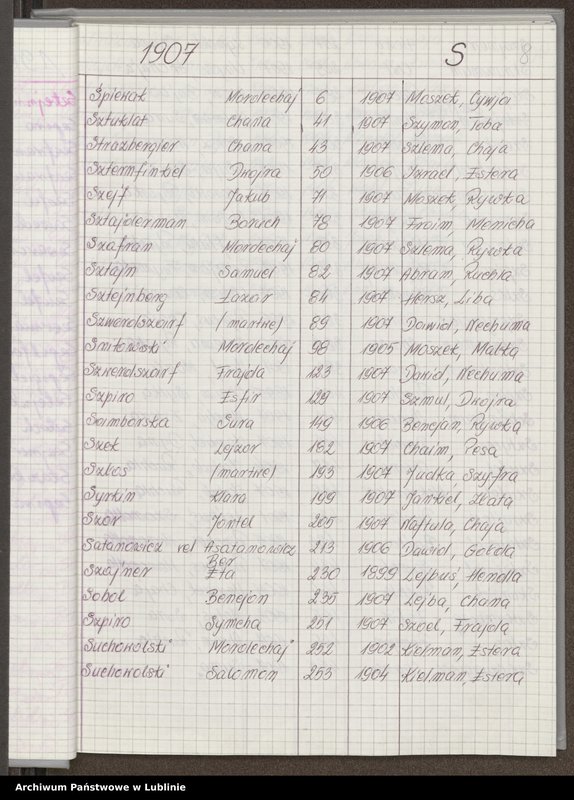 1907 S 8
Śpiewak Mordechaj 6 1907 Moszek, Cywja
Sztuklat Chana 41 1907 Szymon, Toba
Strazbergier Chana 43 1907 Szlema, Chaja
Szternfinkiel Dwojra 50 1906 Izrael, Estera
Szejf Jakub 71 1907 Moszek, Rywka
Sztajderman Boruch 78 1907 Froim, Menicha
Szafran Mordechaj 80 1907 Szlema, Rywka
Sztajn Samuel 82 1907 Abram, Ruchla
Sztejnberg Łazar 84 1907 Hersz, Liba
Szwerdszarf (martwe) 89 1907 Dawid, Nechuma
Snitowski Mordechaj 98 1905 Moszek, Malka
Szwerdszarf Frajda 123 1907 Dawid, Nechuma
Szpiro Esfir 129 1907 Szmul, Dwojra
Samborska Sura 149 1906 Benejan, Rywka
Szek Lejzor 182 1907 Chaim, Pesa
Szlos (martwe) 193 1907 Judka, Szyfra
Syrkin Klara 199 1907 Jankiel, Złata
Szor Jontel 205 1907 Naftula, Chaja
Satanowicz vel Asatanowicz 213 1906 Dawid, Gołda
Ber
Szajner Eta 230 1899 Lejbuś, Hendla
Sobol Benejon 235 1907 Lejba, Chana
Szpiro Symcha 251 1907 Szoel, Frajda
Suchowolski Mordechaj 252 1902 Kielman, Estera
Suchowolski Salomon 253 1904 Kielman, Estera
Archiwum Państwowe w Lublinie